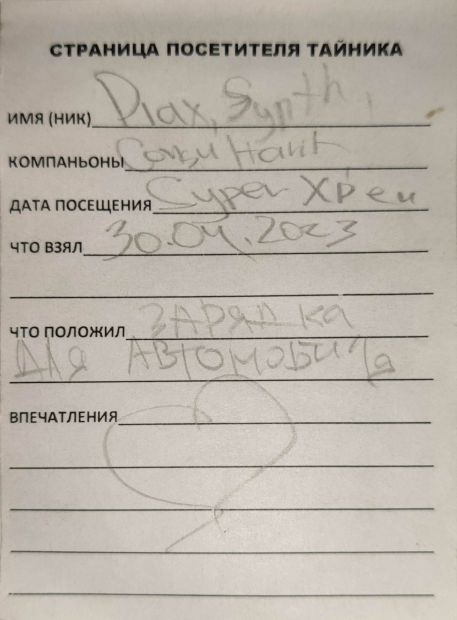 СТРАНИЦА ПОСЕТИТЕЛЯ ТАЙНИКА
ИМЯ (НИК) Diax, Synth,
КОМПАНЬОНЫ
ДАТА ПОСЕЩЕНИЯ Супер Хрен
ЧТО ВЗЯЛ 30.04.2023
ЧТО ПОЛОЖИЛ ЗАРЯДКА
ДЛЯ АВТОМОБИЛЯ
ВПЕЧАТЛЕНИЯ